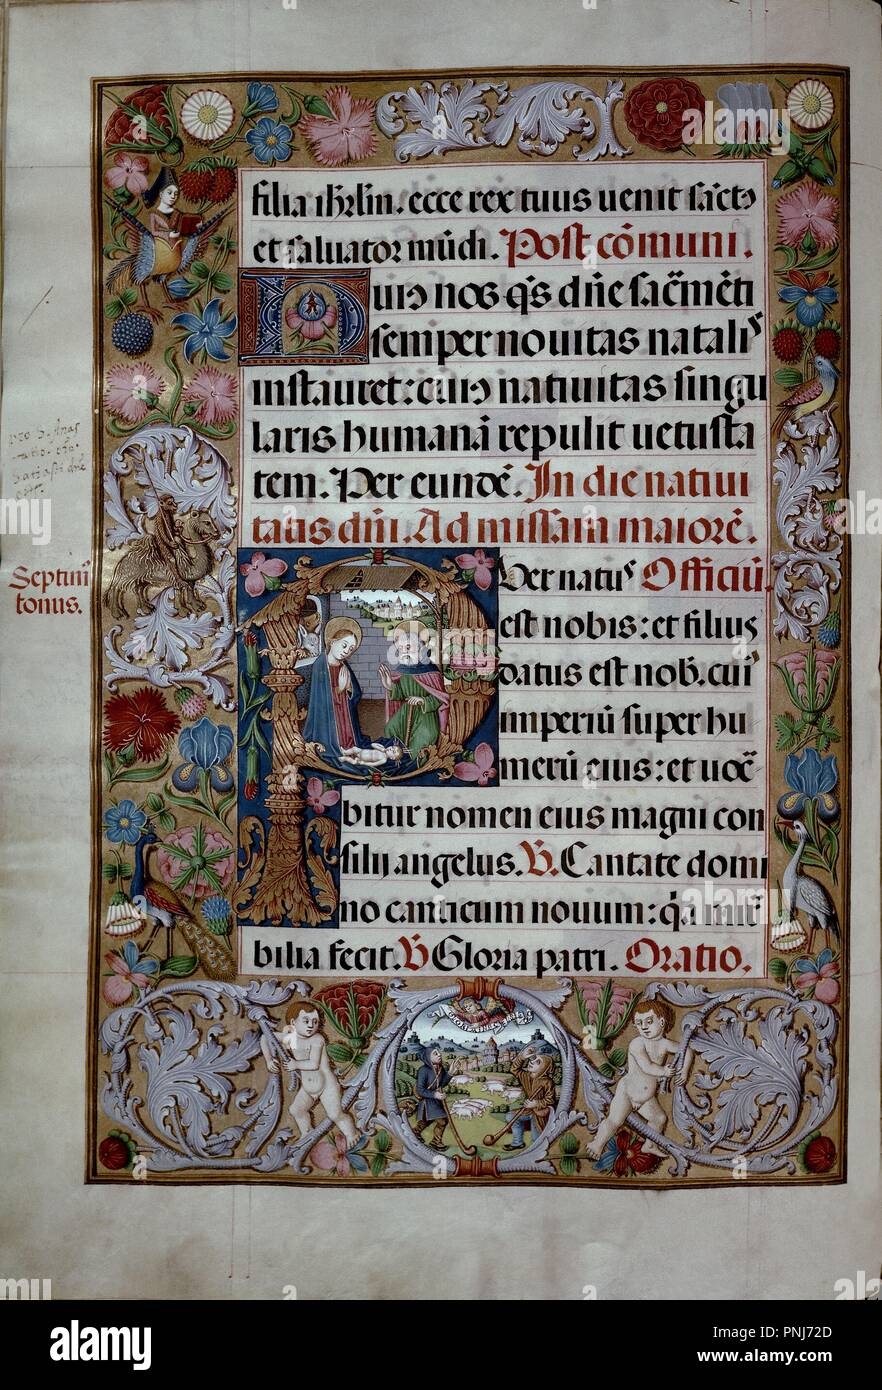 filia ih̄rłm. ecce rex tuus uenit sāctꝰ
et saluator mūdi. Post cōmuni.
Huiꝰ nos q̄s dn̄e sac̄mēti
semper nouitas natalis
instauret: cuiꝰ natiuitas singu
laris humanā repulit uetusta
tem. Per eundē. In die natiui
tatis dn̄i. Ad missam maiorē.
Puer natus Officiū
est nobis: et filius
datus est nob. cuiꝰ
imperiū super hu
merū eius: et uoc̄
bitur nomen eius magni con
silij angelus. V̄. Cantate domi
no canticum nouum: q̄a mir̄
bilia fecit. V̄ Gloria patri. Oratio.
Septim̄
tonus.
alamy
Image ID: PNJ72D
www.alamy.com